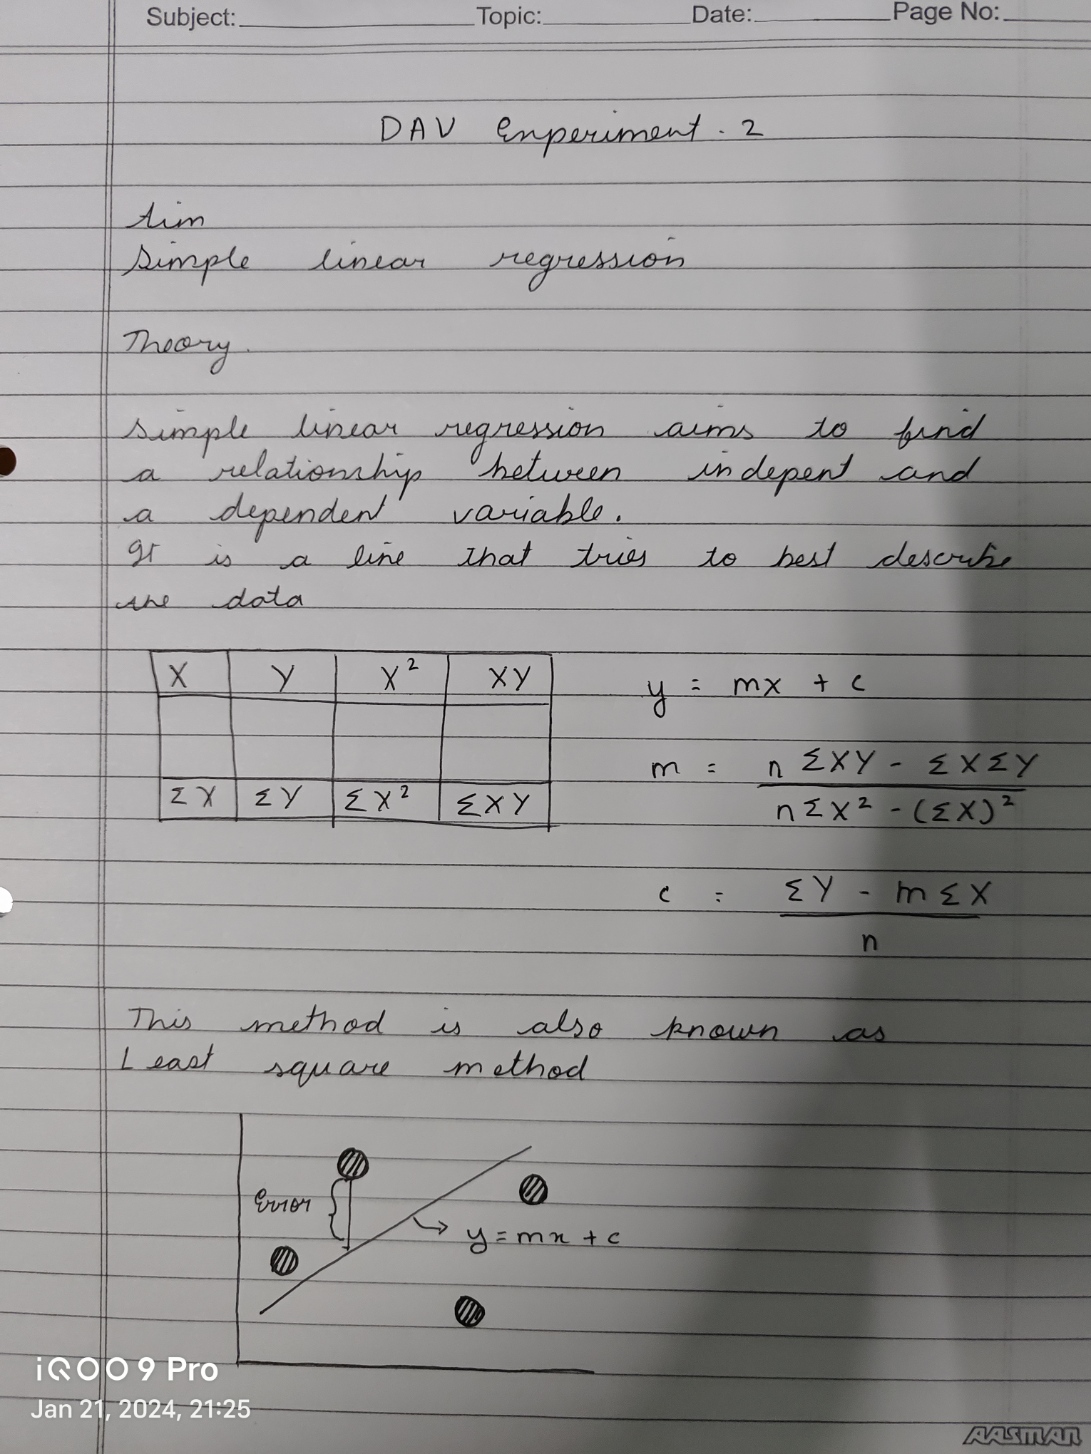 Subject: Topic: Date: Page No:
DAV Experiment. 2
Aim
Simple linear regression
Theory.
Simple linear regression aims to find
a relationship between indepent and
a dependent variable.
It is a line that tries to best describe
the data
X Y X² XY
ΣX ΣY ΣX² ΣXY
y = mx + c
m = n ΣXY - ΣXΣY
nΣX² - (ΣX)²
c = ΣY - mΣX
n
This method is also known as
Least square method
Error
y = mx + c
iQOO 9 Pro
Jan 21, 2024, 21:25
AASMAN